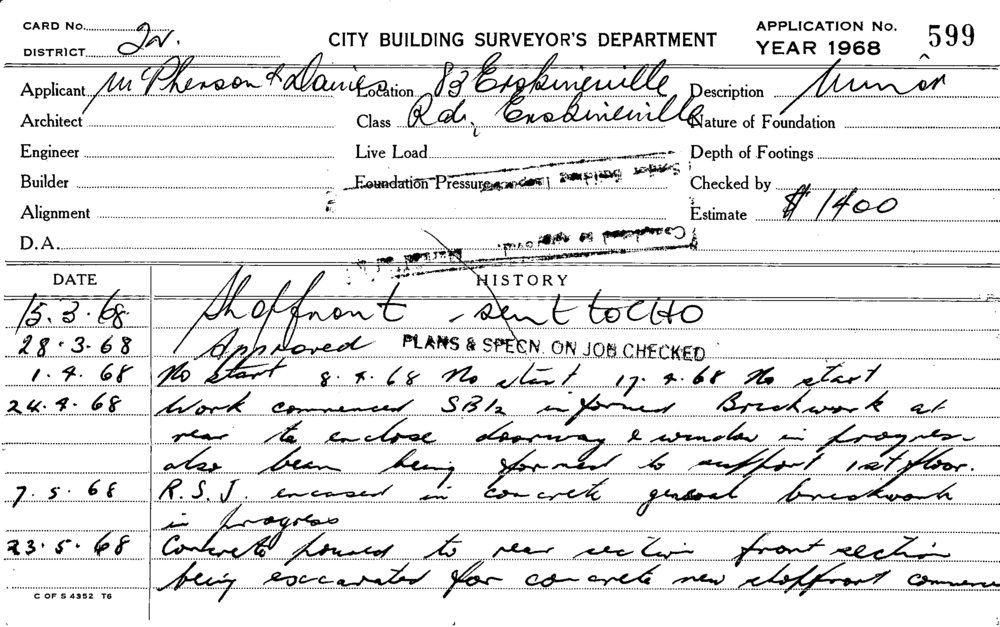 CARD No.
DISTRICT
CITY BUILDING SURVEYOR'S DEPARTMENT
APPLICATION No. 599
YEAR 1968
Applicant McPherson & Davies Location 83 Erskineville Description Minor
Architect Class Rd, Erskineville Nature of Foundation
Engineer Live Load Depth of Footings
Builder Foundation Pressure Checked by
Alignment Estimate $1400
D.A.
DATE HISTORY
15.3.68 Shopfront - sent to CHO
28.3.68 Approved PLANS & SPECN. ON JOB CHECKED
1.4.68 No start 8.4.68 No start 17.4.68 No start
24.4.68 Work commenced informed Brickwork at
rear to enclose doorway & window in progress
also beam being formed to support 1st floor.
7.5.68 R.S.J. encased in concrete general brickwork
in progress
23.5.68 Concrete poured to rear section front section
being excavated for concrete new shopfront
C OF S 4352 T6